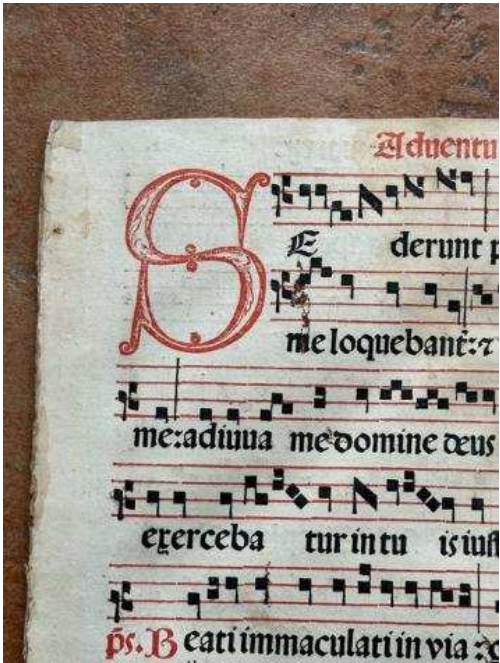 Aduentu
SE derunt p
me loquebant̃:⁊
me:adiuua me domine deus
exerceba tur in tu is iuſt
p̃s. Beati immaculati in via :